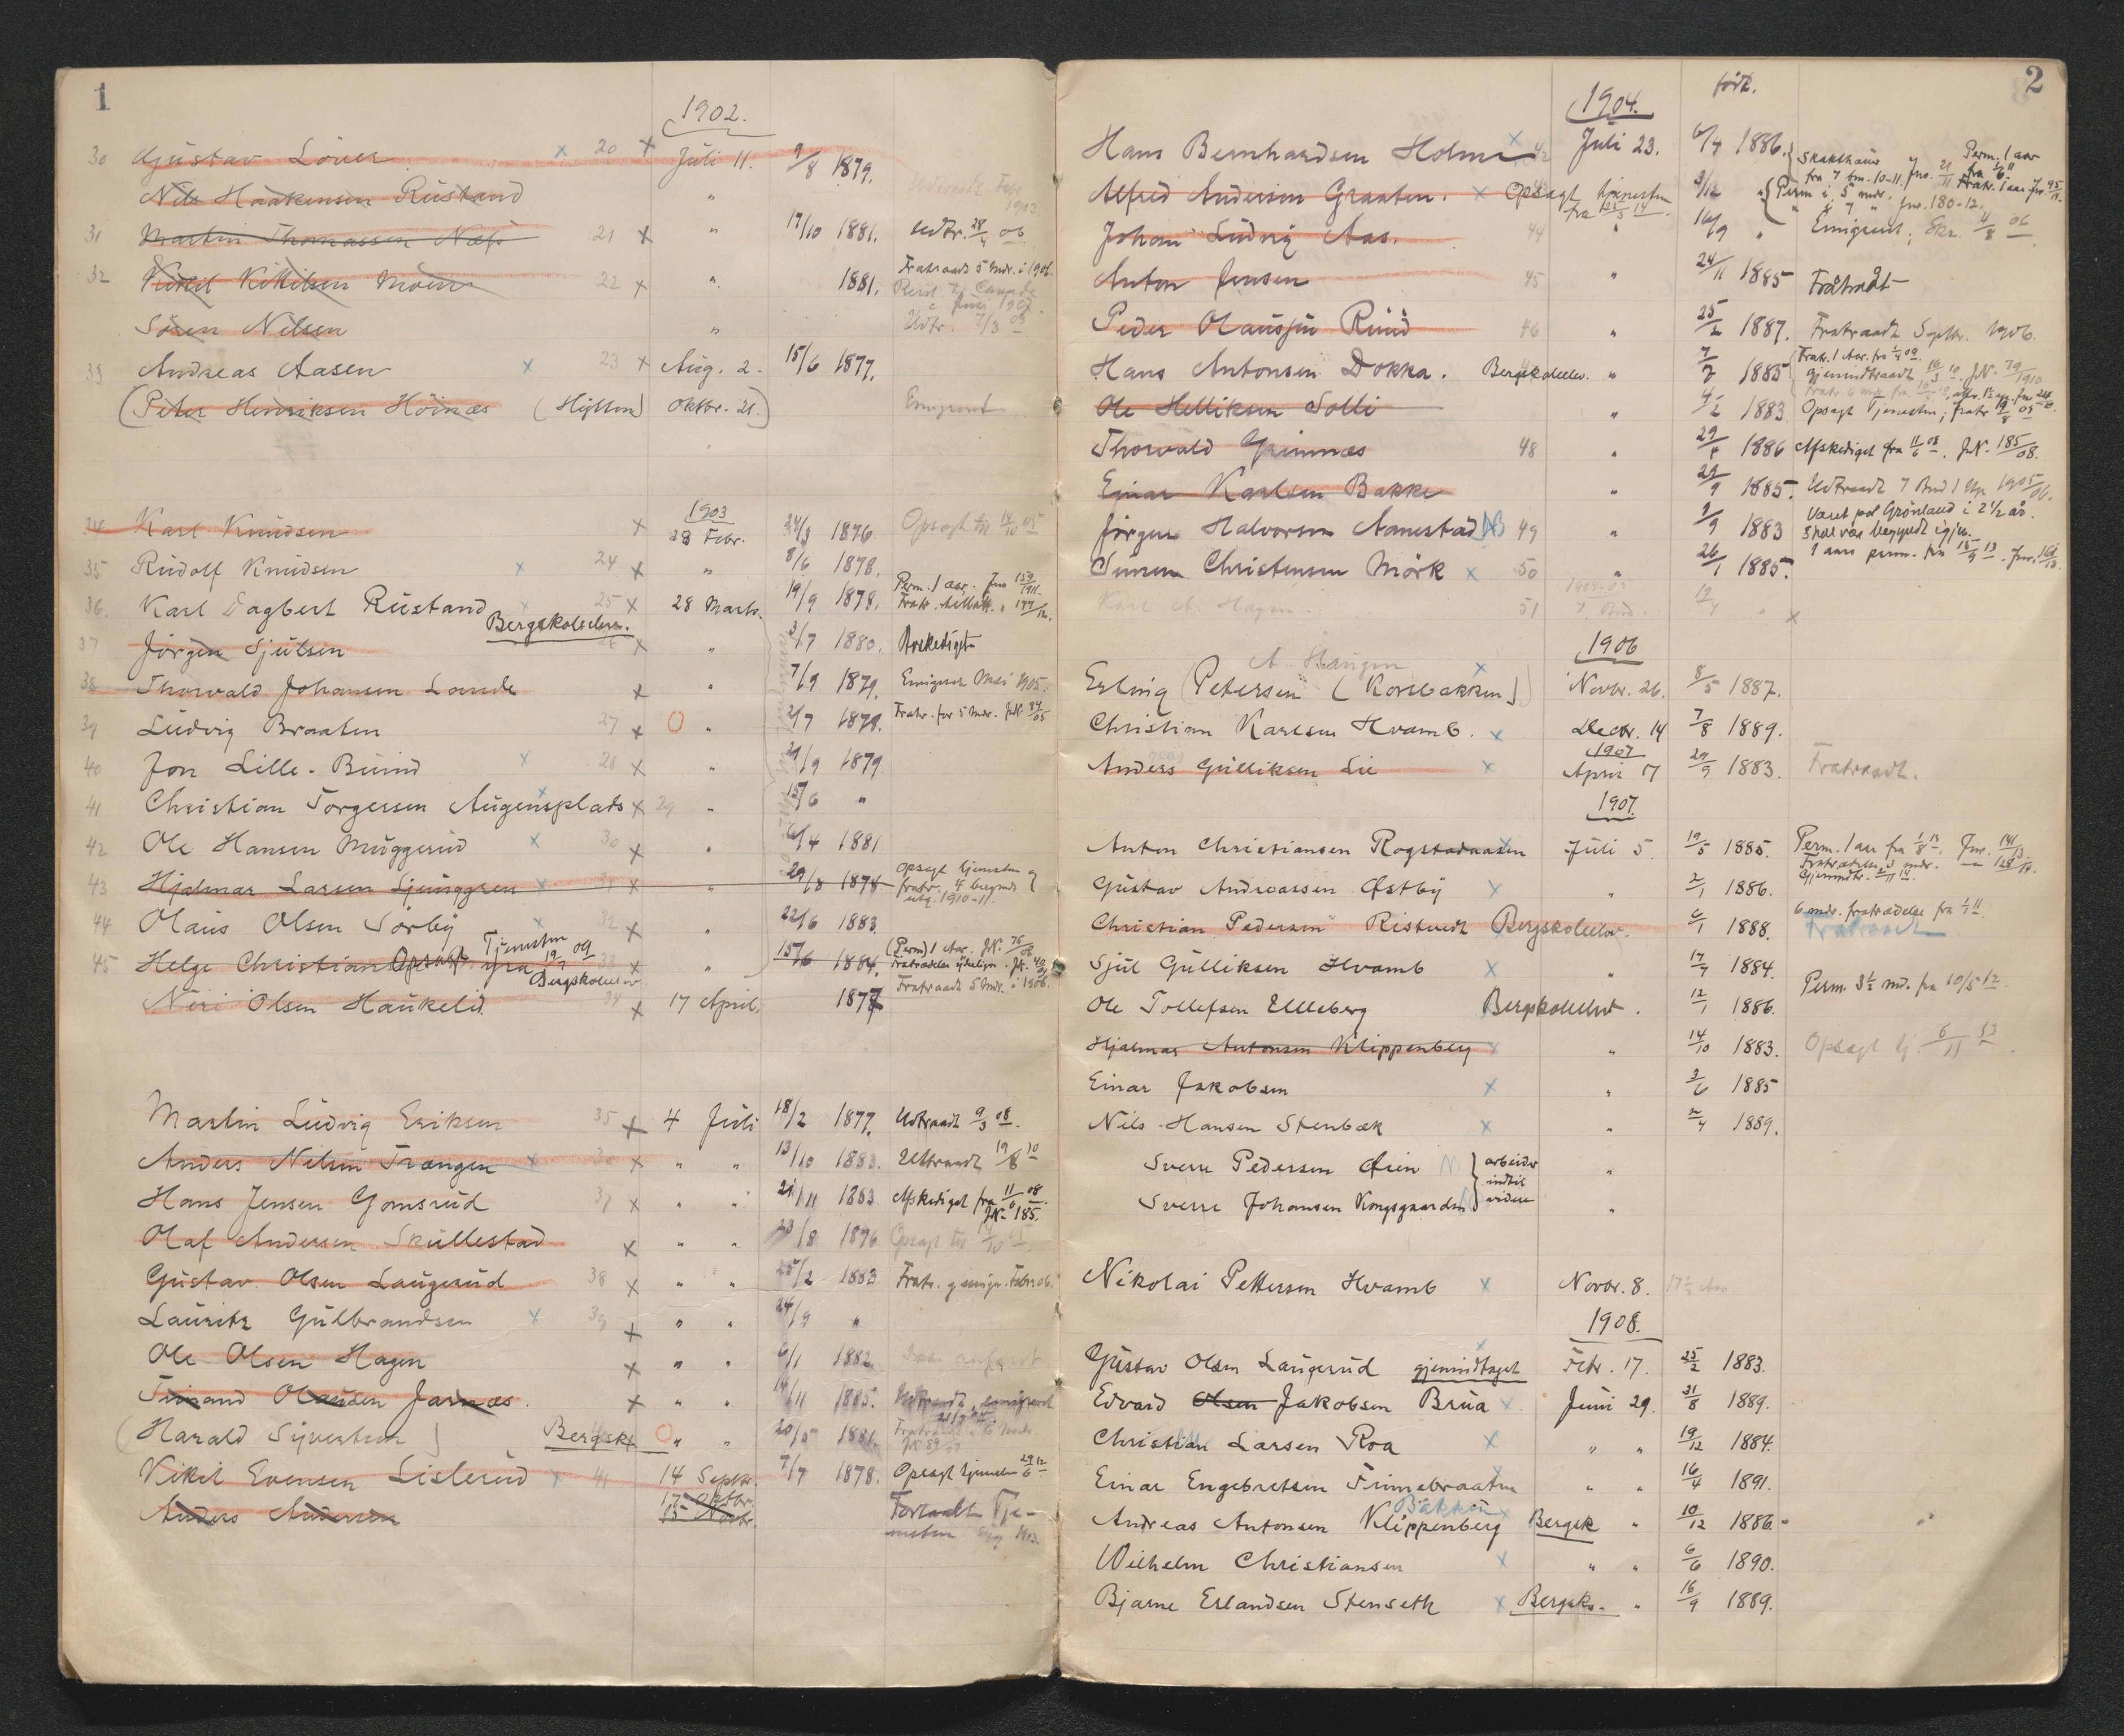 1
1902.
30 Gustav Löver x 20 x Juli 11. 9/8 1879.
Nils Haakensen Rustand " Udtraadt Febr. 1903
31 Martin Thomassen Næss 21 x " 17/10 1881. Udtr. 28/4 06
32 Kittil Kittilsen Moen 22 x " 1881. Fratraadt 5 Mdr. i 1906.
Reist til Canada i Juni 1907.
Sören Nilsen " Udtr. 7/3 03
33 Andreas Aasen x 23 x Aug. 2. 15/6 1877.
(Peter Henriksen Höinæs (Hytten) Oktbr. 21.) Emigrert
1903
34 Karl Knudsen x 28 Febr. 24/3 1876 Opsagt til 14/10 05
35 Rudolf Knudsen x 24 x " 8/6 1878.
36. Karl Dagbert Rustand x 25 x 28 Marts. 19/9 1878. Perm. 1 aar. Jno 159/1911.
Bergskoleelev.
37 Jörgen Sjulsen 26 x " 3/7 1880. Avskediget
38 Thorvald Johansen Lande x " 7/9 1879. Emigrert Mai 1905.
39 Ludvig Braaten 27 x O " 2/7 1879. Fratr. for 5 Mdr. JN. 34/05
40 Jon Lille-Buind x 28 x " 29/9 1879
41 Christian Torgersen Augensplads x x 29 " 15/6 "
42 Ole Hansen Muggerud x 30 x " 6/4 1881
43 Hjalmar Larsen Ljunggren x 31 x " 29/8 1878 Opsagt tjenesten og
fratr. 4 begynd
utg. 1910-11.
44 Olaus Olsen Sørby x 32 x " 22/6 1883.
45 Helge Christian Opsagt Tjenesten fra 19/7 09 33 x " 15/6 1884. (Perm) 1 Aar. JN. 76/08
Bergskoleelev
Neri Olsen Haukelid 34 x 17 April. 1877 Fratraadt 5 Mdr. i 1906.
Martin Ludvig Eriksen 35 x 4 Juli 18/2 1877. Udtraadt 9/3 08.
Anders Nilsen Trangen x 36 x " " 13/10 1883. Udtraadt 19/8 10
Hans Jensen Gomsrud 37 x " " 21/11 1883 Afskediget fra 11/6 08. JN- 185.
Olaf Andersen Skullestad x " " 23/8 1876 Opsagt til 14/10 05.
Gustav Olsen Laugerud 38 x " " 25/2 1883 Fratr. g emigr. Febr. 06.
Lauritz Gulbrandsen x 39 x " " 24/9 "
Ole Olsen Hagen x " " 6/1 1882
Finand Olausen Jarnæs. x " " 11 1885. Udtraadt, emigreret
(Harald Syvertsen) Bergsk. O " " 20/5 1881. Fratraadt 6 Mdr.
JN 89/07
Kikil Evensen Lislerud x 41 14 Septbr. 7/7 1878. Opsagt tjenesten 29/6 12
Anders Andersen 17 Oktbr. Forladt Tje-
15 Novbr. nesten
2
1904. född.
Hans Bernhardsen Holm x 42 Juli 23. 6/7 1886. Skakthauer
fra 7 bm. 10-11. Jno. 21/11 Perm. 1 aar
Alfred Andersen Graaten. x Opsagt tjenesten fra 25/5 14 3/12 " Perm i 5 mdr.
" i 7 " Jno. 180-12.
Johan Ludvig Aas. 44 " 16/9 " Emigrert; Skr. 4/8 06
Anton Jensen 45 " 24/11 1885 Fråtrådt
Peder Olausen Ruud 46 " 25/2 1887. Fratraadt Septbr. 1906.
Hans Antonsen Dokka. Bergskoleelev. " 7/7 1885 Fratr. 1 Aar. fra 1/4 09.
Gjenindtraadt 16/3 10 JN. 79/1910
Ole Helliksen Solli " 4/2 1883 Opsagt Tjenesten; fratr 19/8 05
Thorvald Grimnæs 48 " 29/8 1886 Afskediget fra 11/6 08. JN- 185/08.
Einar Karlsen Bakke " 29/9 1885. Udtraadt 7 Bud / Up. 1905/06.
Jörgen Halvorsen Aanestad NB 49 " 9/9 1883 Været paa Grönland i 2 1/2 år.
Skal væ begyndt igjen.
Simen Christensen Mörk x 50 " 26/1 1885. 1 aars perm. fra 15/9 13.
Karl A. Hagen. 51 7. Bud. 19/7 " x
1906
A Haugen
Erling (Petersen (Korsbakken)) x Novbr. 26. 8/5 1887.
Christian Karlsen Hvamb. x Decbr. 14 7/8 1889.
1907
Anders Gulliksen Lie x April 17 29/9 1883. Fratraadt.
1907.
Anton Christiansen Rogstadaasen x Juli 5. 19/5 1885. Perm. 1 aar fra 1/8 13. Jno. 141/13
Fratrædelse 3 mdr. 128/14.
Gjenindtr. 2/11 14.
Gustav Andreassen Østby x " 2/1 1886.
6 mdr. fratrædelse fra 1/7 11
Christian Pedersen Ristvedt Bergskoleelev. " 6/1 1888. Fratraadt
Sjul Gulliksen Hvamb x " 17/7 1884.
Perm. 3 1/2 md. fra 10/5 12.
Ole Tollefsen Elleberg Bergskoleelev. 12/1 1886.
Hjalmar Antonsen Klippenberg x " 14/10 1883. Opsagt tj. 6/11 13
Einar Jakobsen x " 3/6 1885
Nils Hansen Stenbæk x " 2/4 1889.
Sverre Pedersen Øien N } arbeider "
indtil
Sverre Johansen Kongsgaarden } videre "
Nikolai Pettersen Hvamb x Novbr. 8. 17 1/2 Aar
1908.
Gustav Olsen Laugerud gjenindtaget x Febr. 17. 25/2 1883.
Edvard Olsen Jakobsen Brua x Juni 29. 31/8 1889.
Christian Larsen Roa x " " 19/12 1884.
Einar Engebretsen Frimebraaten x " " 16/4 1891.
Bakken
Andreas Antonsen Klippenberg x Bergsk " 10/12 1886.
Wilhelm Christiansen x " " 6/6 1890.
Bjarne Erlandsen Stenseth x Bergsk. " 16/9 1889.